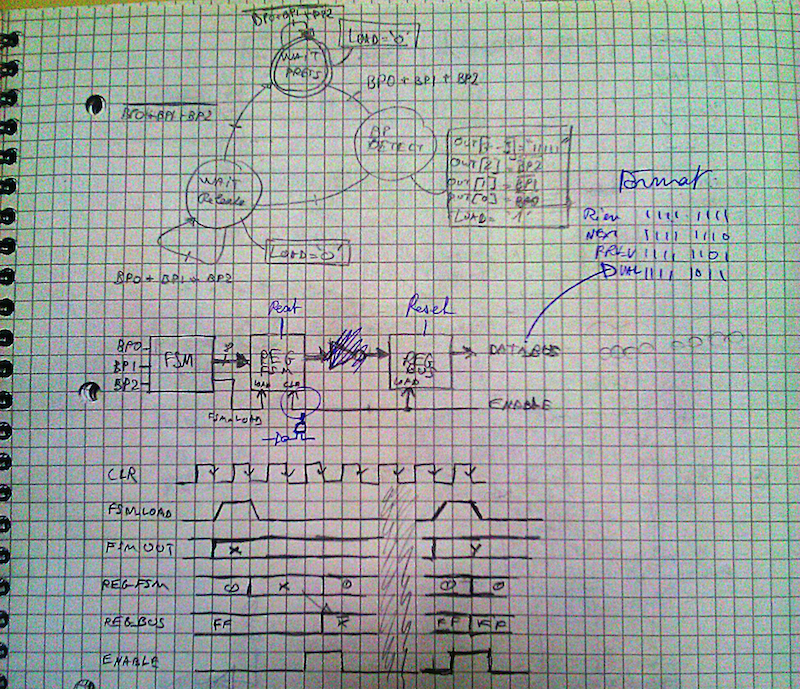 BP0+BP1+BP2
LOAD='0'
WAIT
PRESS
BP0 + BP1 + BP2
BP0+BP1+BP2
BP
DETECT
OUT[7-3]="11111"
OUT[2] = BP2
OUT[1] = BP1
OUT[0] = BP0
LOAD= '1'
WAIT
Release
LOAD='0'
BP0 + BP1 + BP2
Format
Rien 1111 1111
NEXT 1111 1110
PREV 1111 1101
DUAL 1111 1011
Reset
Reset
BP0
BP1
BP2
FSM
REG
FSM
LOAD CLR
REG
BUS
LOAD
DATABUS
FSM LOAD
ENABLE
CLR
FSM LOAD
FSM OUT X Y
REG-FSM 0 X 0 0 0
REG-BUS FF X FF FF
ENABLE